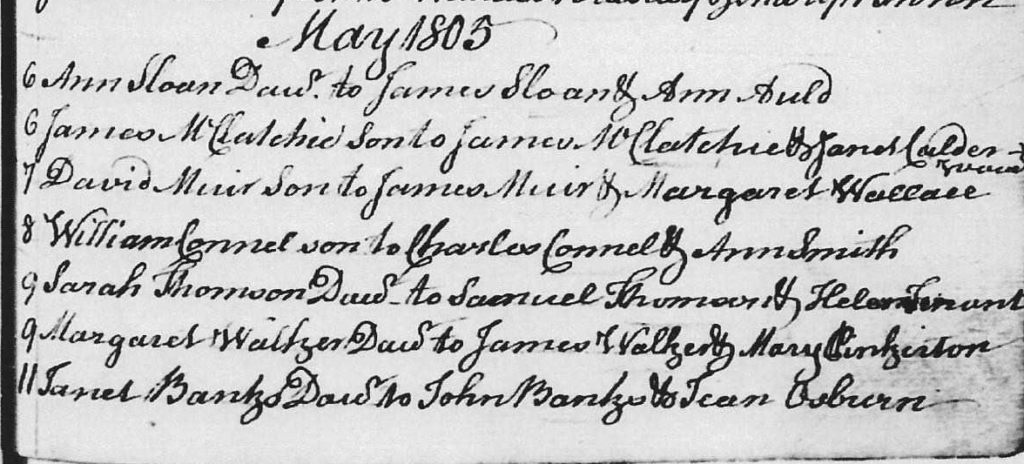 May 1805
6 Ann Sloan Dawr. to James Sloan & Ann Auld
6 James McClatchie son to James McClatchie & Janet Calder-
wood
7 David Muir Son to James Muir & Margaret Wallace
8 William Connel son to Charles Connel & Ann Smith
9 Sarah Thomson Dawr. to Samuel Thomson & Helen Tenant
9 Margaret Walker Dawr to James Walker & Mary Pinkerton
11 Janet Banks Dawr to John Banks & Jean Osburn